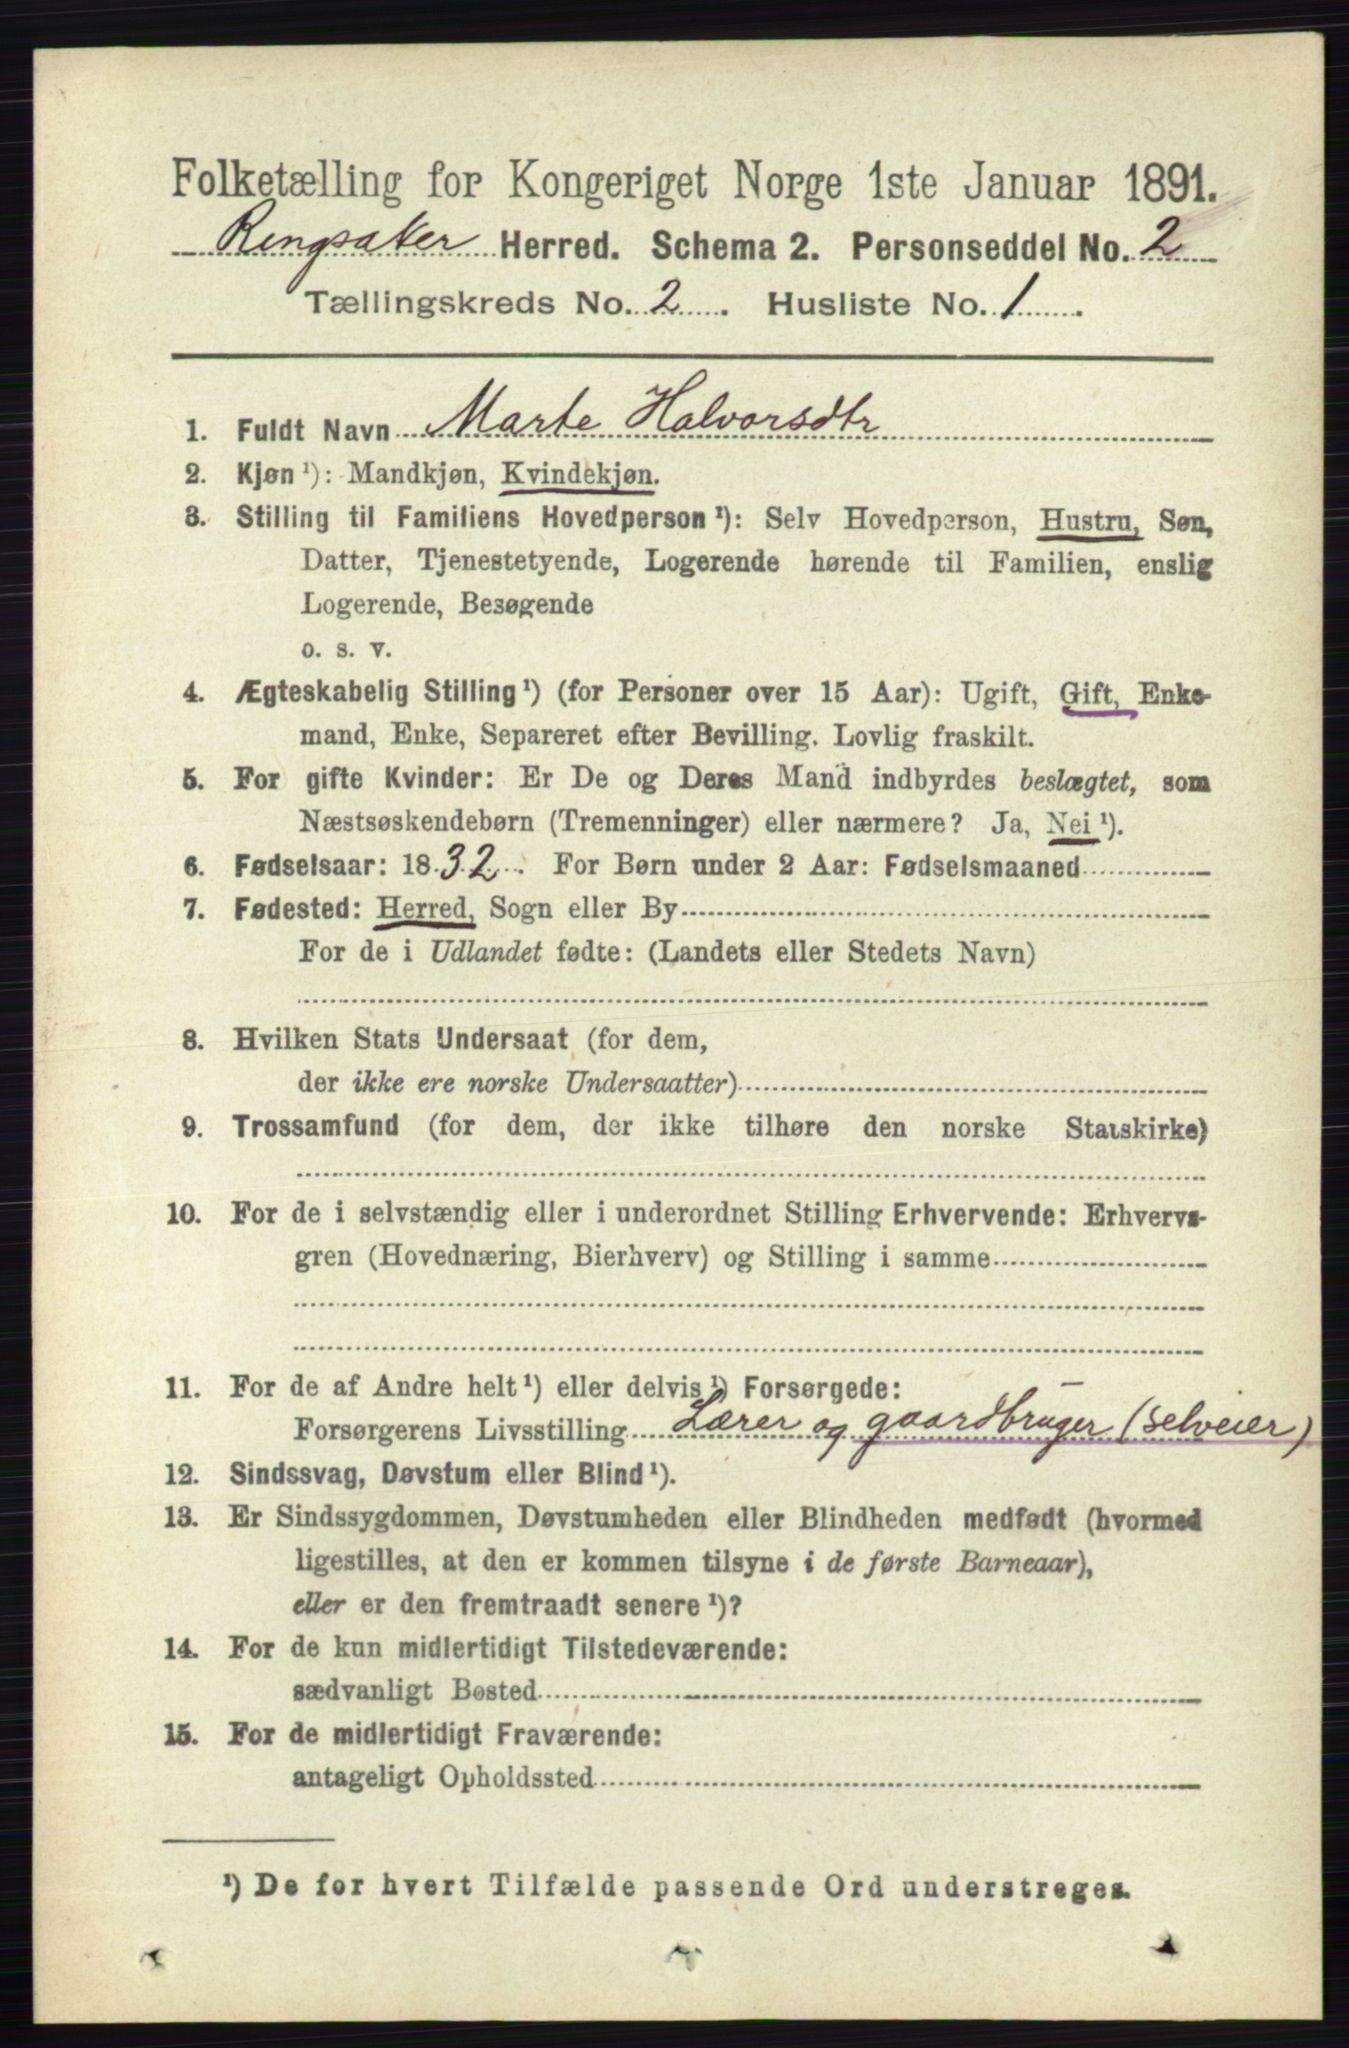 Folketælling for Kongeriget Norge 1ste Januar 1891.
Ringsaker Herred. Schema 2. Personseddel No. 2
Tællingskreds No. 2. Husliste No. 1.
1. Fuldt Navn Marte Halvorsdtr
2. Kjøn ¹): Mandkjøn, Kvindekjøn.
3. Stilling til Familiens Hovedperson ¹): Selv Hovedperson, Hustru, Søn,
Datter, Tjenestetyende, Logerende hørende til Familien, enslig
Logerende, Besøgende
o. s. v.
4. Ægteskabelig Stilling ¹) (for Personer over 15 Aar): Ugift, Gift, Enke-
mand, Enke, Separeret efter Bevilling. Lovlig fraskilt.
5. For gifte Kvinder: Er De og Deres Mand indbyrdes beslægtet, som
Næstsøskendebørn (Tremenninger) eller nærmere? Ja, Nei ¹).
6. Fødselsaar: 1832. For Børn under 2 Aar: Fødselsmaaned
7. Fødested: Herred, Sogn eller By
For de i Udlandet fødte: (Landets eller Stedets Navn)
8. Hvilken Stats Undersaat (for dem,
der ikke ere norske Undersaatter)
9. Trossamfund (for dem, der ikke tilhøre den norske Statskirke)
10. For de i selvstændig eller i underordnet Stilling Erhvervende: Erhvervs-
gren (Hovednæring, Bierhverv) og Stilling i samme
11. For de af Andre helt ¹) eller delvis ¹) Forsørgede:
Forsørgerens Livsstilling Lærer og gaardbruger (selveier)
12. Sindssvag, Døvstum eller Blind ¹).
13. Er Sindssygdommen, Døvstumheden eller Blindheden medfødt (hvormed
ligestilles, at den er kommen tilsyne i de første Barneaar),
eller er den fremtraadt senere ¹)?
14. For de kun midlertidigt Tilstedeværende:
sædvanligt Bosted
15. For de midlertidigt Fraværende:
antageligt Opholdssted
¹) De for hvert Tilfælde passende Ord understreges.